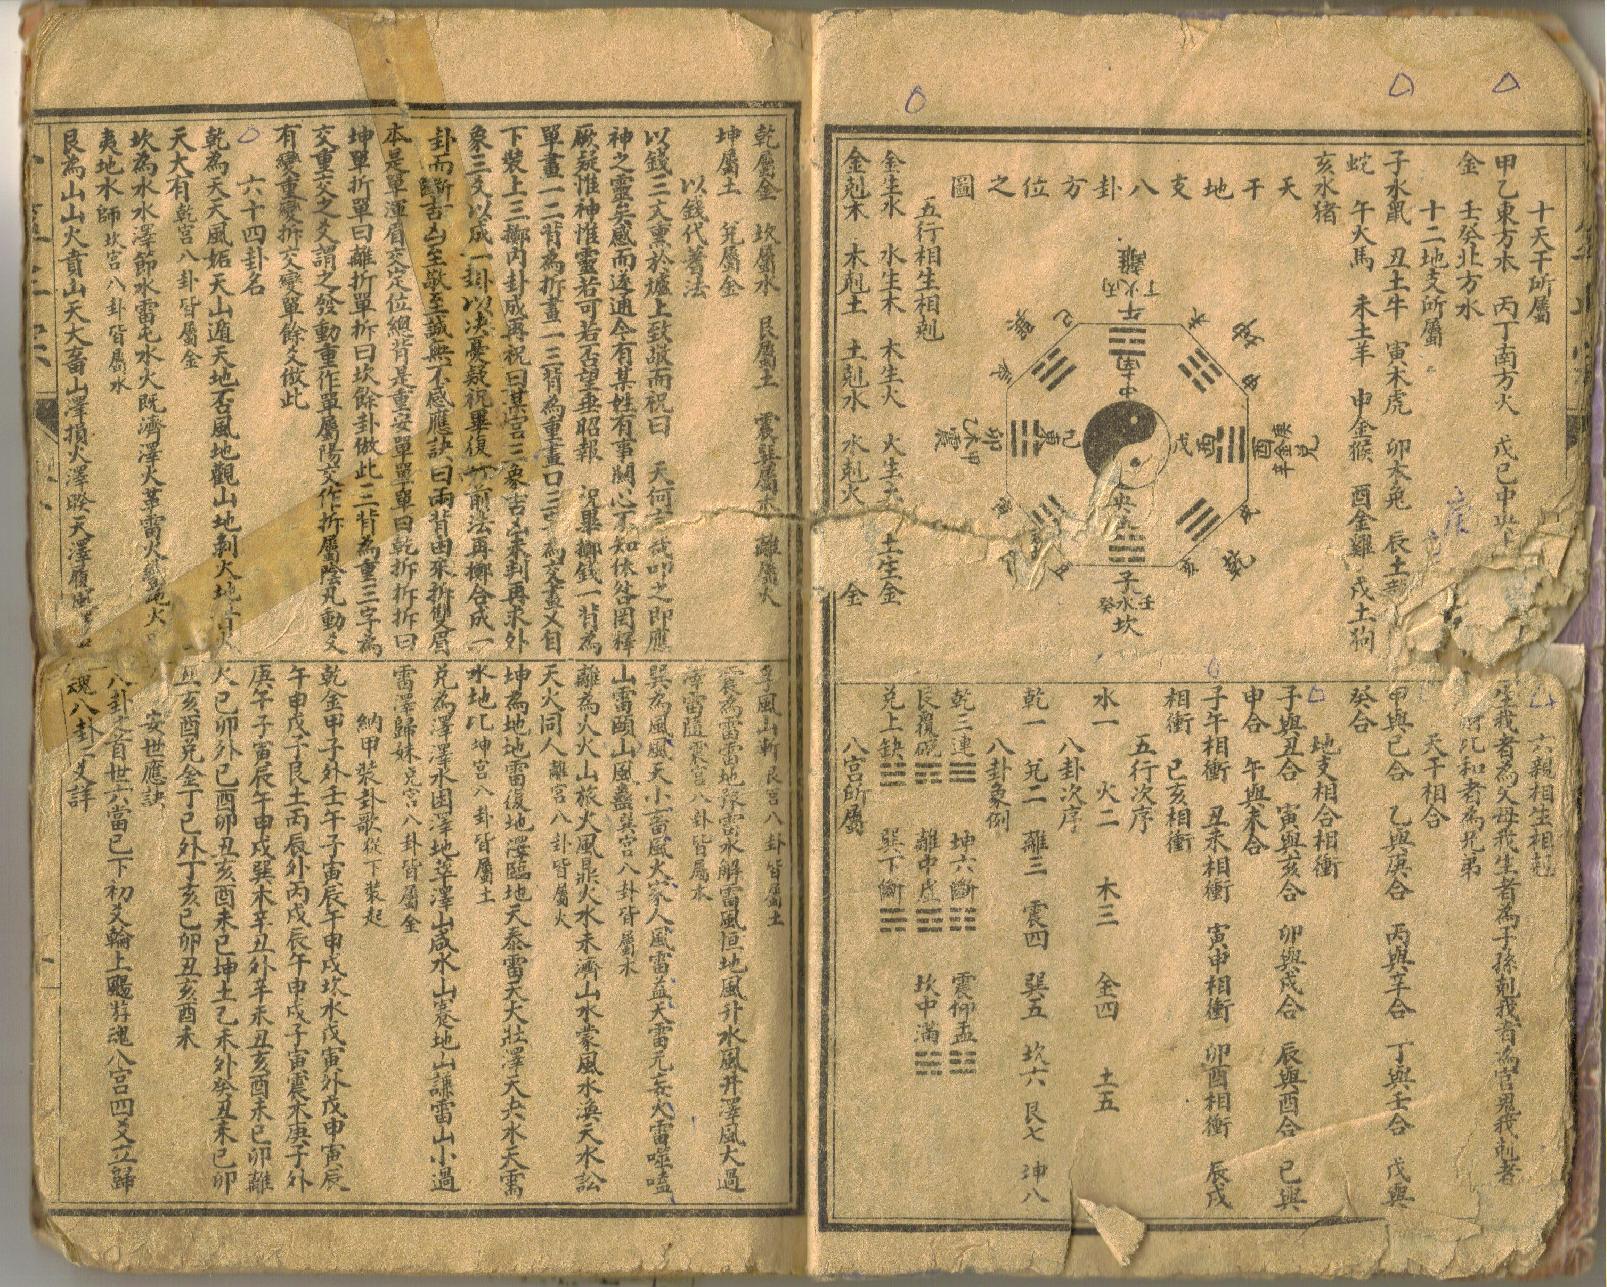 十天干所屬
甲乙東方木　丙丁南方火　戊己中央
金　壬癸北方水
十二地支所屬
子水鼠　丑土牛　寅木虎　卯木兔　辰土
蛇　午火馬　未土羊　申金猴　酉金雞　戌土狗
亥水猪
天干地支八卦方位之圖
離
丙火丁
午
南
中
兌
庚金辛
酉
西
戊
己
東
卯
甲木乙
震
子
壬水癸
坎
乾
五行相生相剋
金生水　水生木　木生火　火生土　土生金
金剋木　木剋土　土剋水　水剋火　金
六親相生相剋
生我者為父母我生者為子孫剋我者為官鬼我剋者
比和者為兄弟
天干相合
甲與己合　乙與庚合　丙與辛合　丁與壬合　戊與
癸合
地支相合相衝
子與丑合　寅與亥合　卯與戌合　辰與酉合　巳與
申合　午與未合
子午相衝　丑未相衝　寅申相衝　卯酉相衝　辰戌
相衝　巳亥相衝
五行次序
水一　火二　木三　金四　土五
八卦次序
乾一　兌二　離三　震四　巽五　坎六　艮七　坤八
八卦象例
乾三連☰　坤六斷☷　震仰盂☳
艮覆碗☶　離中虛☲　坎中滿☵
兌上缺☱　巽下斷☴
八宮所屬
乾屬金　坎屬水　艮屬土　震巽屬木　離屬火
坤屬土　兌屬金
以錢代蓍法
以錢三文熏於爐上致敬而祝曰　天何言哉叩之即應
神之靈矣感而遂通今有某姓有事關心不知休咎罔釋
厥疑惟神惟靈若可若否望垂昭報　祝畢擲錢一背為
單畫一二背為拆畫二三背為重畫口三字為交畫乂自
下裝上三擲內卦成再祝曰某宮三象吉凶未判再求外
象三爻以成一卦以决憂疑祝畢復如前法再擲合成一
卦而斷吉凶至敬至誠無不感應訣曰兩背由來拆雙眉
本是單渾眉交定位總背是重安單單單曰乾拆拆拆曰
坤單拆單曰離拆單拆曰坎餘卦倣此三背為重三字為
交重交之爻謂之發動重作單屬陽交作拆屬陰凡動爻
有變重變拆交變單餘爻倣此
六十四卦名
乾為天天風姤天山遁天地否風地觀山地剝火地晉火
天大有乾宮八卦皆屬金
坎為水水澤節水雷屯水火既濟澤火革雷火豐地火
夷地水師坎宮八卦皆屬水
艮為山山火賁山天大畜山澤損火澤睽天澤履風
孚風山漸艮宮八卦皆屬土
震為雷雷地豫雷水解雷風恒地風升水風井澤風大過
澤雷隨震宮八卦皆屬木
巽為風風天小畜風火家人風雷益天雷无妄火雷噬嗑
山雷頤山風蠱巽宮八卦皆屬木
離為火火山旅火風鼎火水未濟山水蒙風水渙天水訟
天火同人離宮八卦皆屬火
坤為地地雷復地澤臨地天泰雷天大壯澤天夬水天需
水地比坤宮八卦皆屬土
兌為澤澤水困澤地萃澤山咸水山蹇地山謙雷山小過
雷澤歸妹兌宮八卦皆屬金
納甲裝卦歌從下裝起
乾金甲子外壬午子寅辰午申戌坎水戊寅外戊申寅辰
午申戌子艮土丙辰外丙戌辰午申戌子寅震木庚子外
庚午子寅辰午申戌巽木辛丑外辛未丑亥酉未巳卯離
火己卯外己酉卯丑亥酉未巳坤土乙未外癸丑未巳卯
丑亥酉兌金丁巳外丁亥巳卯丑亥酉未
安世應訣
八卦之首世六當已下初爻輪上颺游魂八宮四爻立歸
魂八卦三爻詳